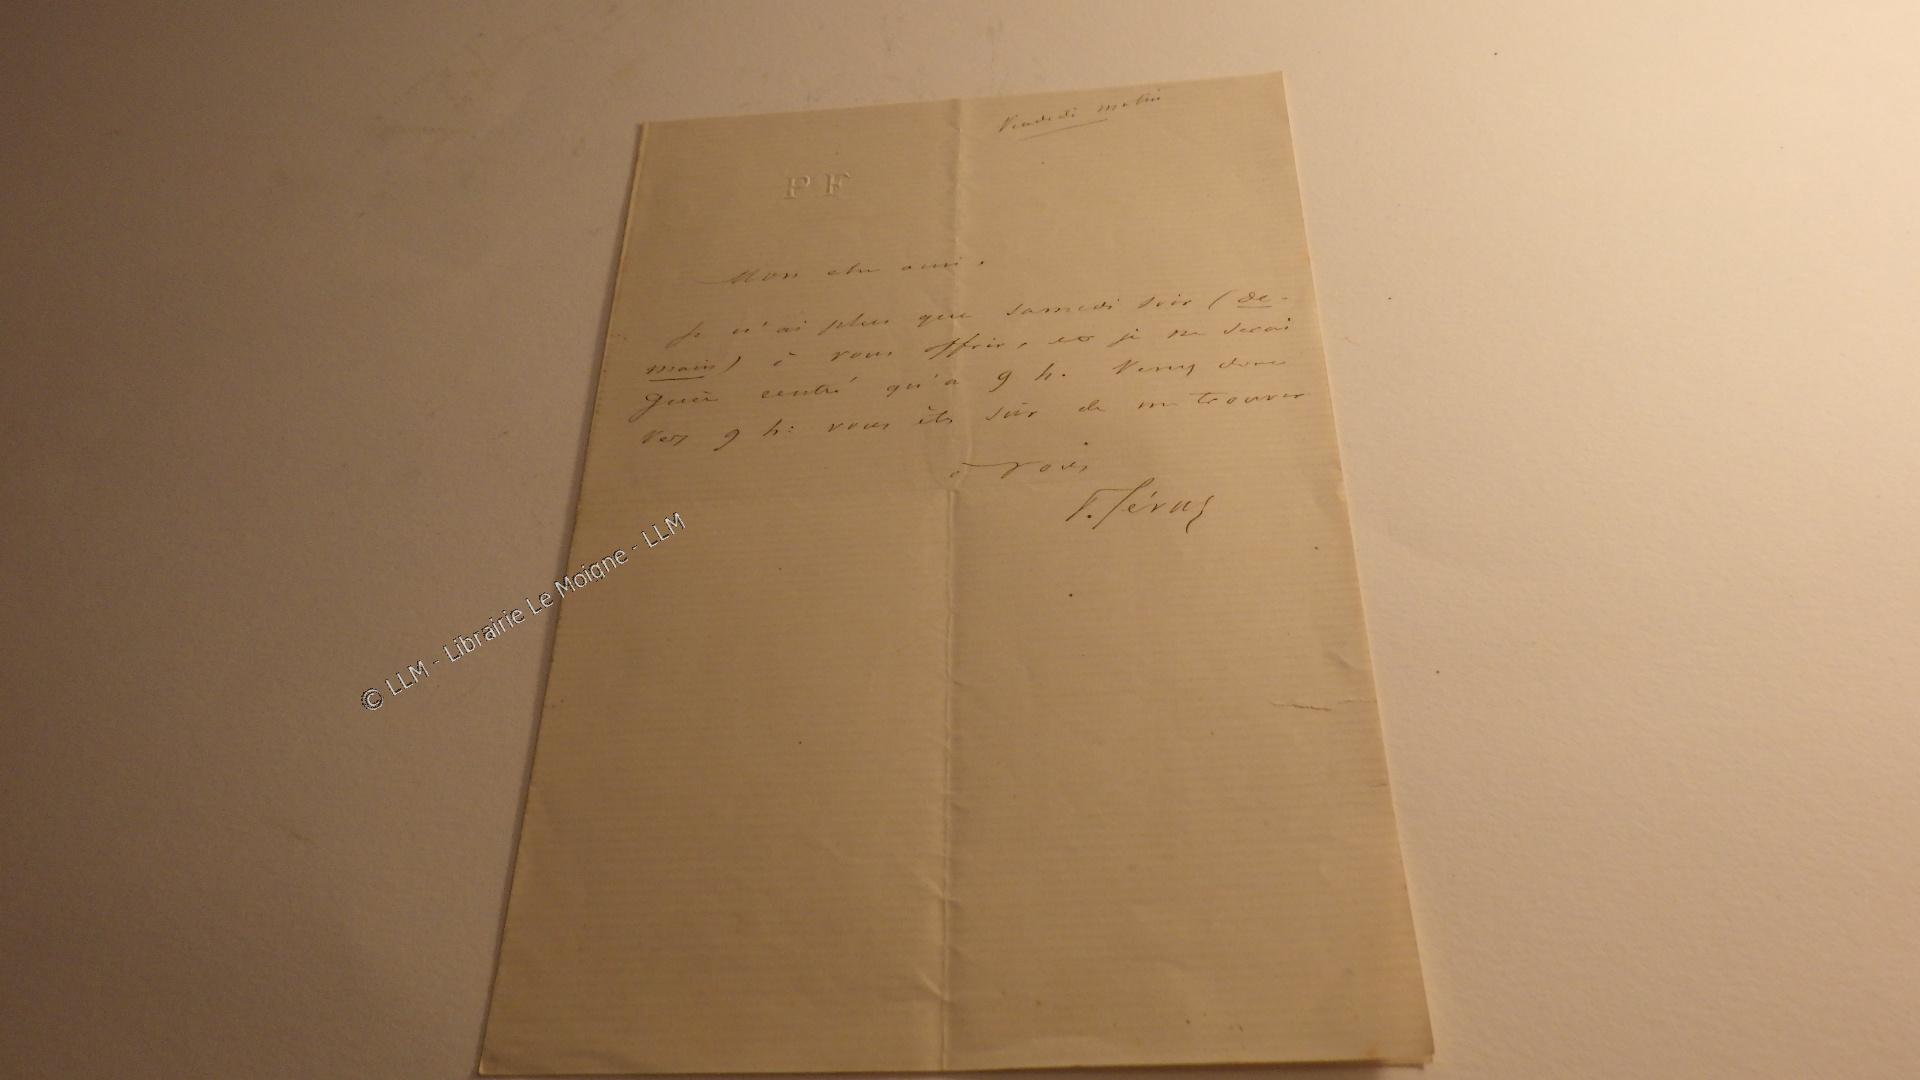 Vendredi matin
P F
Mon cher ami,
Je n'ai plus que samedi soir (de-
main) à vous offrir, et je ne serai
guère rentré qu'à 9 h. Venez donc
vers 9 h: vous êtes sûr de me trouver
à vous
© LLM - Librairie Le Moigne - LLM